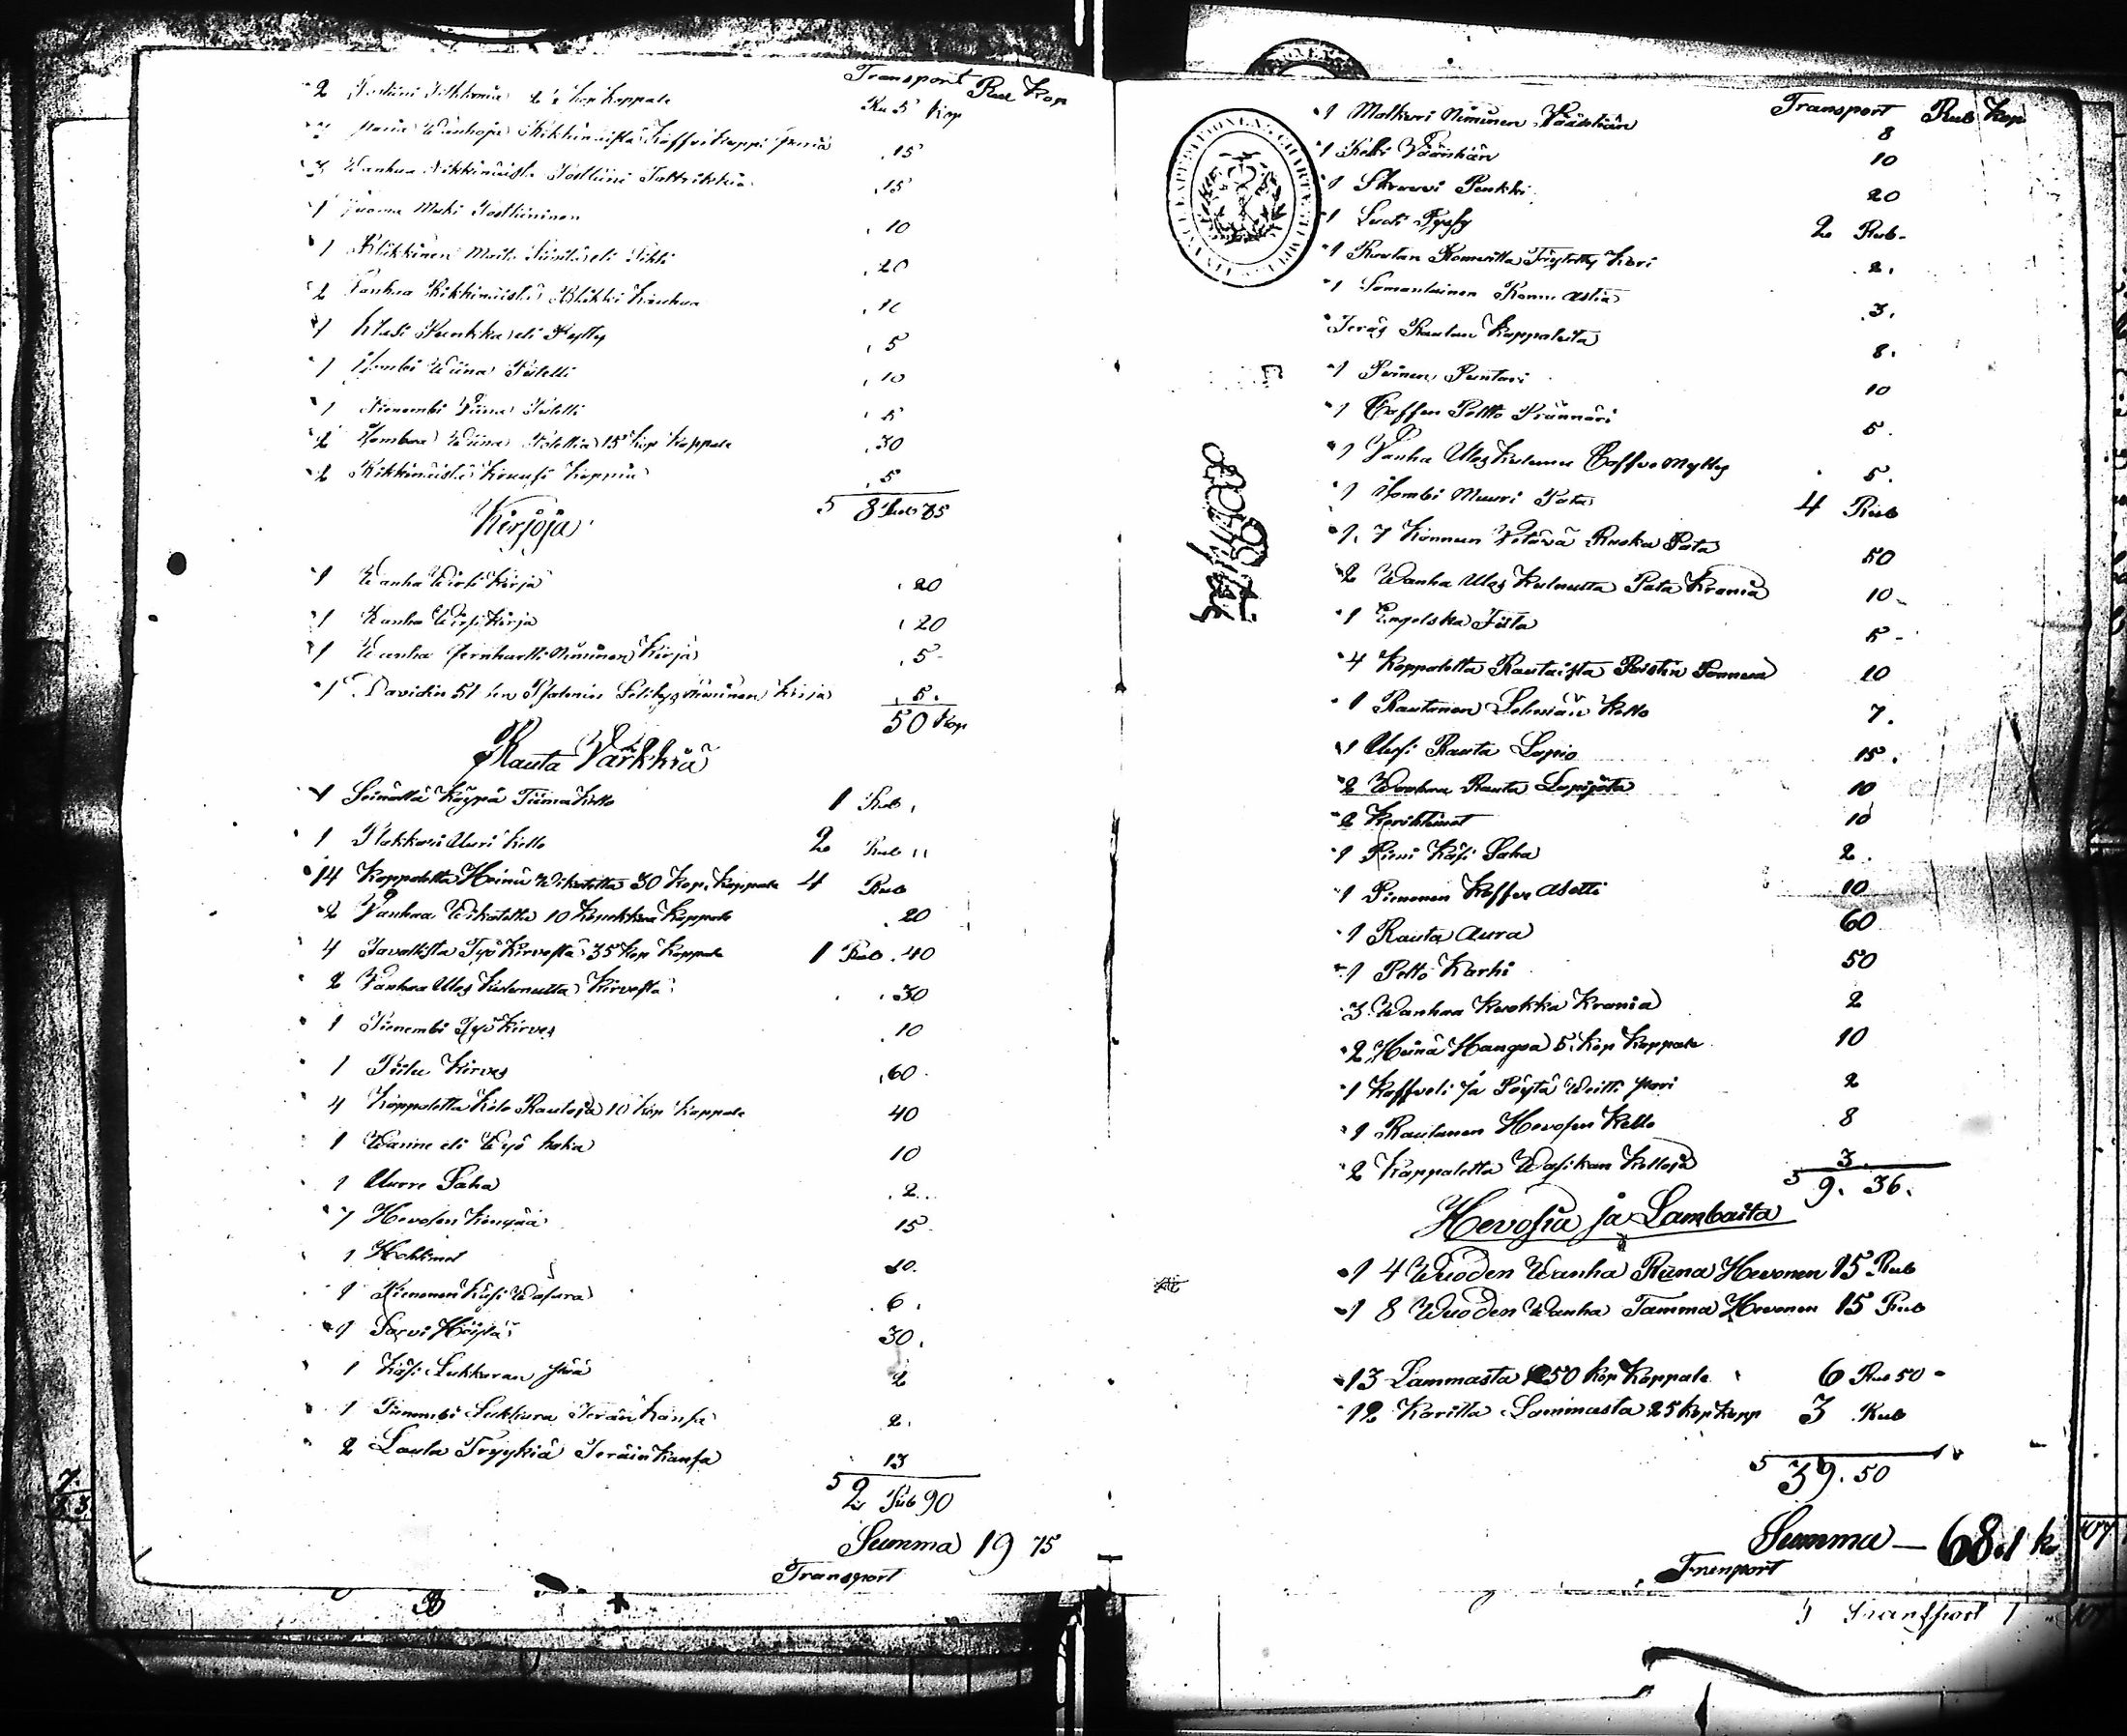 Transport Rub Kop
2 Kop Kappale Ru 5 Kop
Kaffe Kuppi 15
3 Wanhaa Rikkinäistä Postliini Tallrikkia 15
1 Juoma Muki Postliininen 10
1 Blikkinen Maito Siivilä eli Sihti 20
2 Vanhaa Rikkinäistä Blikki Kauhaa
1 Klasi Punkka eli Pytty 5
1 Isombi Wiina Puteli 10
1 Pienembi Viina Puteli 5
2 Isombaa Wiina Potellia 15 Kop Kappale 30
2 Rikkinäistä Kruusi Kuppia 5
5 8 Rub 85
Kirjoja
1 Wanha Wirsi Kirja 20
1 Wanha Wirsi Kirja 20
1 Wanha Niminen Kirja 5
1 Davidin 51 sen Psalmin Selitys Niminen Kirja 5.
50 Kop
Rauta Värkkiä
1 Seinällä Käypä Tiima Kello 1 Rub
1 Plakkari Uuri Kello 2 Rub
14 Kappaletta Heinä Wikatetta 30 Kop. Kappale 4 Rub
2 Vanhaa Wikatetta 10 Kopekkaa Kappale 20
4 Tavallista Työ Kirvestä 35 Kop Kappale 1 Rub. 40
2 Vanhaa Ulos Kulunutta Kirvestä 30
1 Pienembi Työ Kirves 10
1 Piilu Kirves 60
4 Kappaletta Kilo Rautoja 10 Kop Kappale 40
1 Wanne eli Wyö haka 10
1 Uurre Saha 2.
7 Hevosen Kengää 15
1 Hohtimet 10.
1 Pienonen Käsi Wasara 6.
1 Sarvi Höylä 30.
1 Käsi Lukkuran 2
1 Pienembi Lukkura Terän Kansa 2.
2 Lauta Tryykiä Teräin Kansa 13
5 2 Rub 90
Summa 19 75
Transport
Transport Rub Kop
1 Matkuri Niminen Väänkiän 8
1 Väänkiän 10
1 Skruuvi Penkki 20
1 Luoti Pyssy 2 Rub
1 Raudan Romuilla Täytetty Kori 2.
1 Romu Astia 3.
Teräs Raudan Kappaleita 8.
1 Peinen Puntari 10
1 Caffen Poltto Prännäri 5.
1 Vanha Ulos Kulunu Caffee Mylly 5.
1 Isombi Muuri Pata 4 Rub
1. 7 Kannun Vetävä Ruoka Pata 50
2 Wanha Ulos Kulunutta Pata Krania 10
1 Engelska 5
4 Kappaletta Rautaista 10
1 Rautanen Lehmän Kello 7.
1 Uusi Rauta Lapio 15.
2 Wanhaa Rauta Lapijota 10
2 Keritsimet 10
1 Pieni Käsi Saha 2.
1 Pienonen Kaffee Asetti 10
1 Rauta Aura 60
1 Pelto Karhi 50
3 Wanhaa Kuokka Krania 2
2 Heinä Hangoa 5 Kop Kappale 10
1 Kaffveli ja Pöytä Weitti Pari 2
1 Rautanen Hevosen Kello 8
2 Kappaletta Wasikan Kelloja 3
5 9. 36.
Hevosia ja Lambaita
1 4 Wuoden Wanha Runa Hevonen 15 Rub
1 8 Wuoden Wanha Tamma Hevonen 15 Rub
13 Lammasta 50 Kop Kappale 6 Rub 50
12 Karitta Lammasta 25 Kop Kapp 3 Rub
5 39. 50
Summa 68.1
Transport
Transport